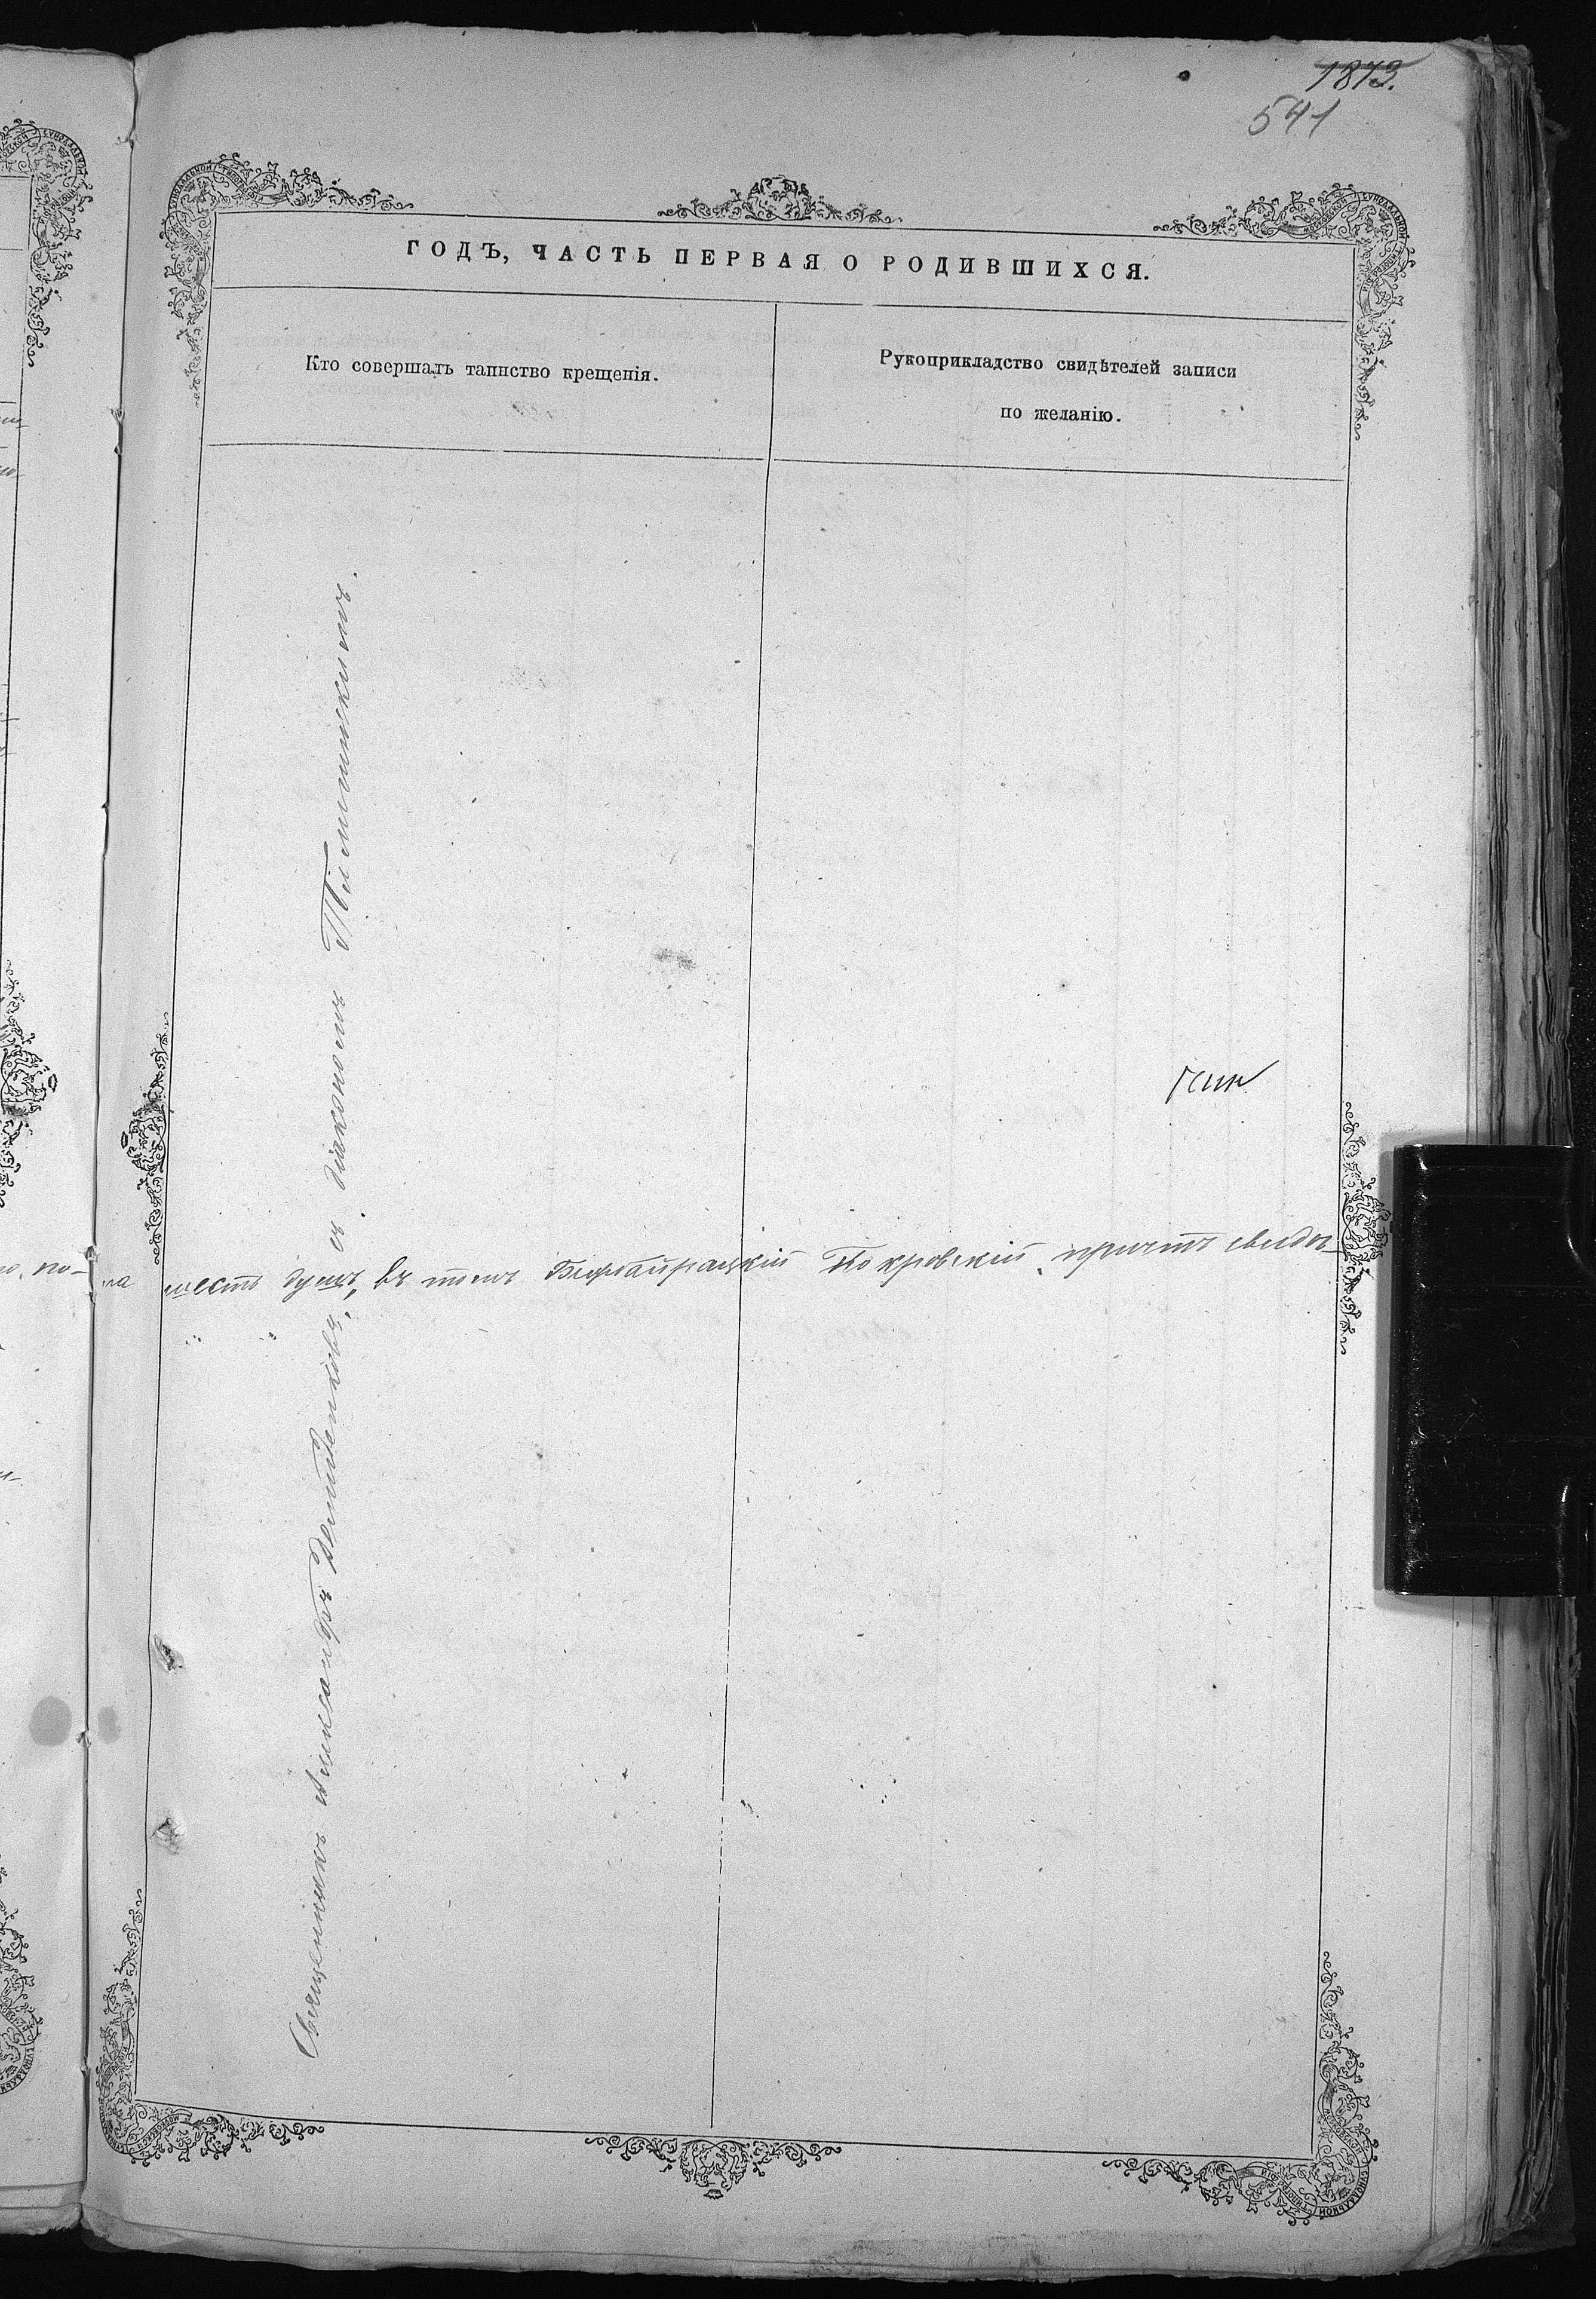 1873.
541
ГОДЪ, ЧАСТЬ ПЕРВАЯ О РОДИВШИХСЯ.
Кто совершалъ таинство крещенія.
Рукоприкладство свидѣтелей записи
по желанію.
Священникъ Александръ Демиденковъ, съ діакономъ
шесть душъ, въ томъ Покровскій причтъ свидѣ-